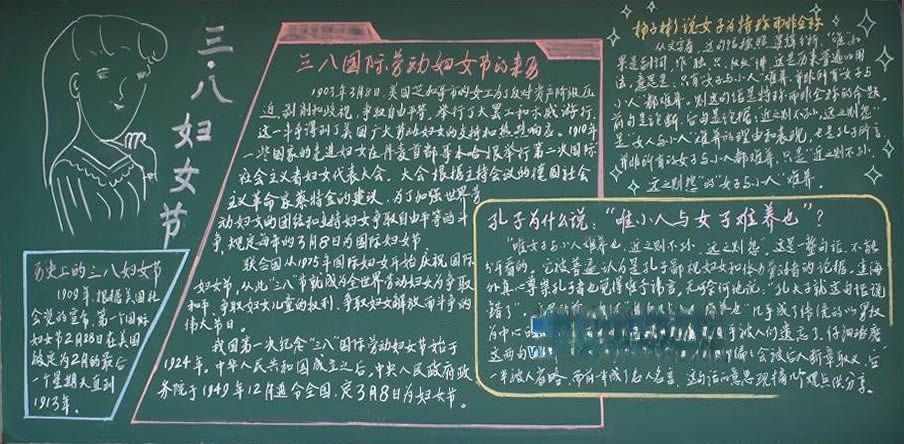 三·八妇女节
历史上的三八妇女节
1909年,根据美国社
会党的宣布,第一个国际
妇女节2月28日在美国
被定为2月的最后
一个星期天直到
1913年。
三八国际劳动妇女节的来历
1903年3月8日,美国芝加哥市的女工为了反对资产阶级压
迫、剥削和歧视,争取自由平等,举行了大罢工和示威游行,
这一斗争得到了美国广大劳动妇女的支持和热烈响应。1910年
一些国家的先进妇女在丹麦首都哥本哈根举行第二次国际
社会主义者妇女代表大会,大会根据主持会议的德国社会
主义革命家蔡特金的建议,为了加强世界劳
动妇女的团结和支持妇女争取自由平等的斗
争,规定每年的3月8日为国际妇女节
联合国从1975年国际妇女年开始庆祝国际
妇女节,从此“三八”节就成为全世界劳动妇女为争取
和平、争取妇女儿童的权利、争取妇女解放而斗争的
伟大节日。
我国第一次纪念“三八”国际劳动妇女节始于
1924年。中华人民共和国成立之后,中央人民政府政
务院于1949年12月通令全国,定3月8日为妇女节。
说女子为特称而非全称
从文字看,这句话按照逻辑分析,“唯”如
果是副词,作“独、只、仅仅”讲,这是先秦普遍的用
法,意思是,只有“女子与小人”难养,并非所有“女子与
小人”都难养。则这句话是特称而非全称的命题。
前句是论断,后句是论据:近之则不孙,远之则怨”
是“女人与小人”难养的理由和表现,也是孔子所言
并非所有的女子与小人都难养,只是“近之则不孙,
远之则怨”的“女子与小人”难养。
孔子为什么说:“唯小人与女子难养也”?
“唯女子与小人难养也,近之则不孙,远之则怨”,这是一整句话,不能
分开看的。它被普遍认为是孔子鄙视妇女和体力劳动者的论据,连海
外真心尊崇孔子者也觉得难于讳言,无可奈何地说,“孔夫子就这句话说
错了”。
也几乎成了传统的以男权
为中心的
乎被人们遗忘了。仔细琢磨
这两句
会被后人断章取义,后
一半被人省略,而前半成了名人名言。这句话的意思现摘几个观点供分享。